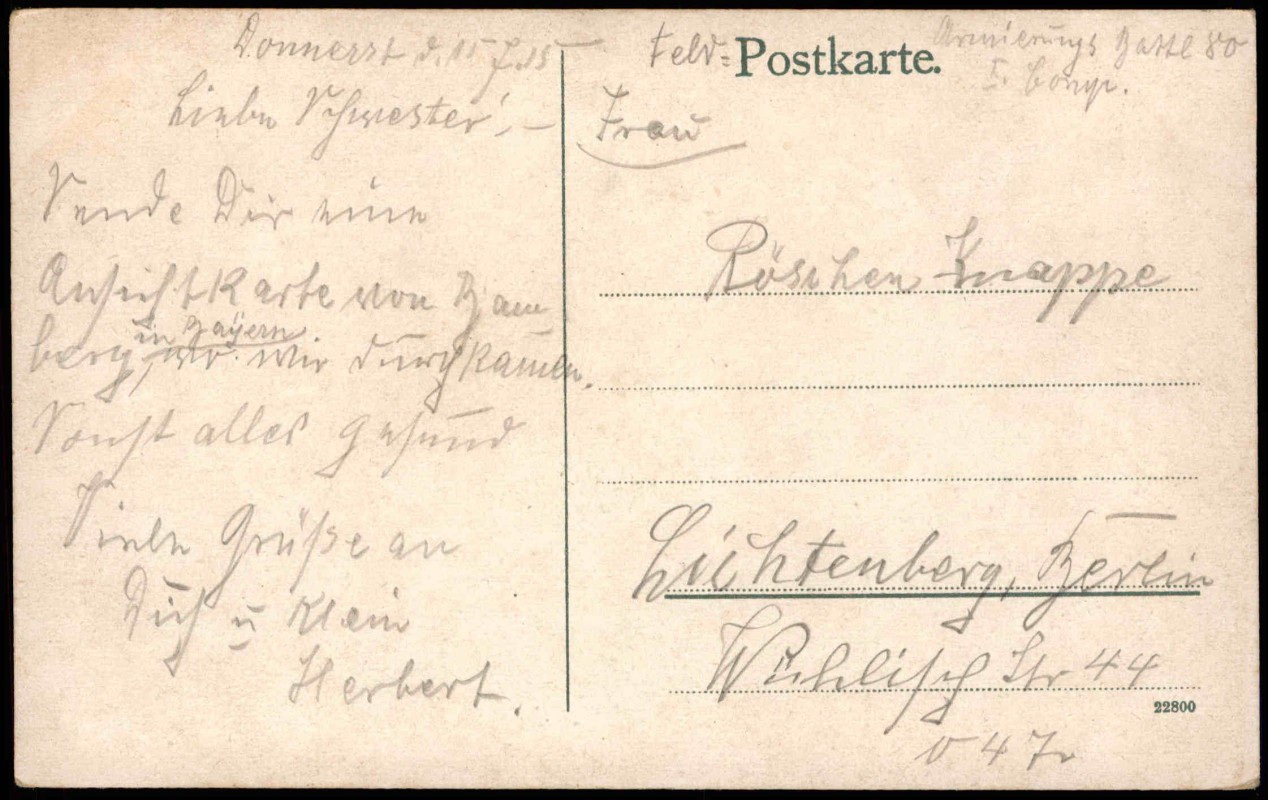 Donnerst d. 15 7. 15
Liebe Schwester! –
Sende Dir eine
Ansichtkarte von Bam-
berg, in Bayern
wo wir durchkamen.
Sonst alles gesund
Viele Grüße an
Dich u klein
Herbert.
Feld= Postkarte.
Armierungs Battl 80
I. Comp.
Frau
Röschen Knappe
Lichtenberg, Berlin
Wühlisch Str 44
O 47
22800